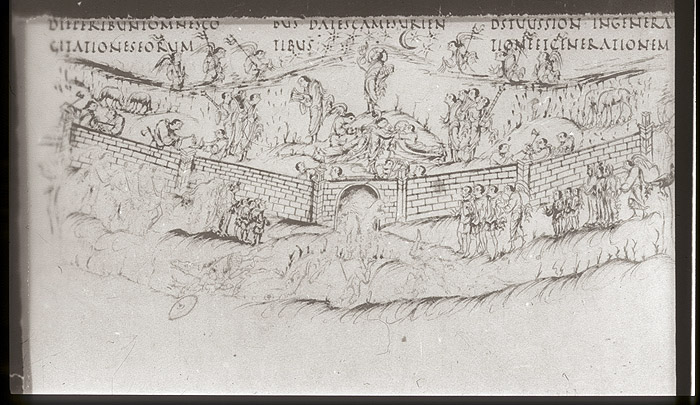 DIEPERIBUNTOMNESCO
GITATIONESEORUM
BUS DATESCAMESURIEN
TIBUS
DSTUUSSION INGENERA
TIONEETGENERATIONEM